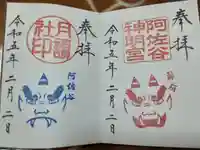 奉拝
阿佐谷
神明宮
令和五年二月二日
奉拝
月讀
社印
阿佐谷
令和五年二月二日